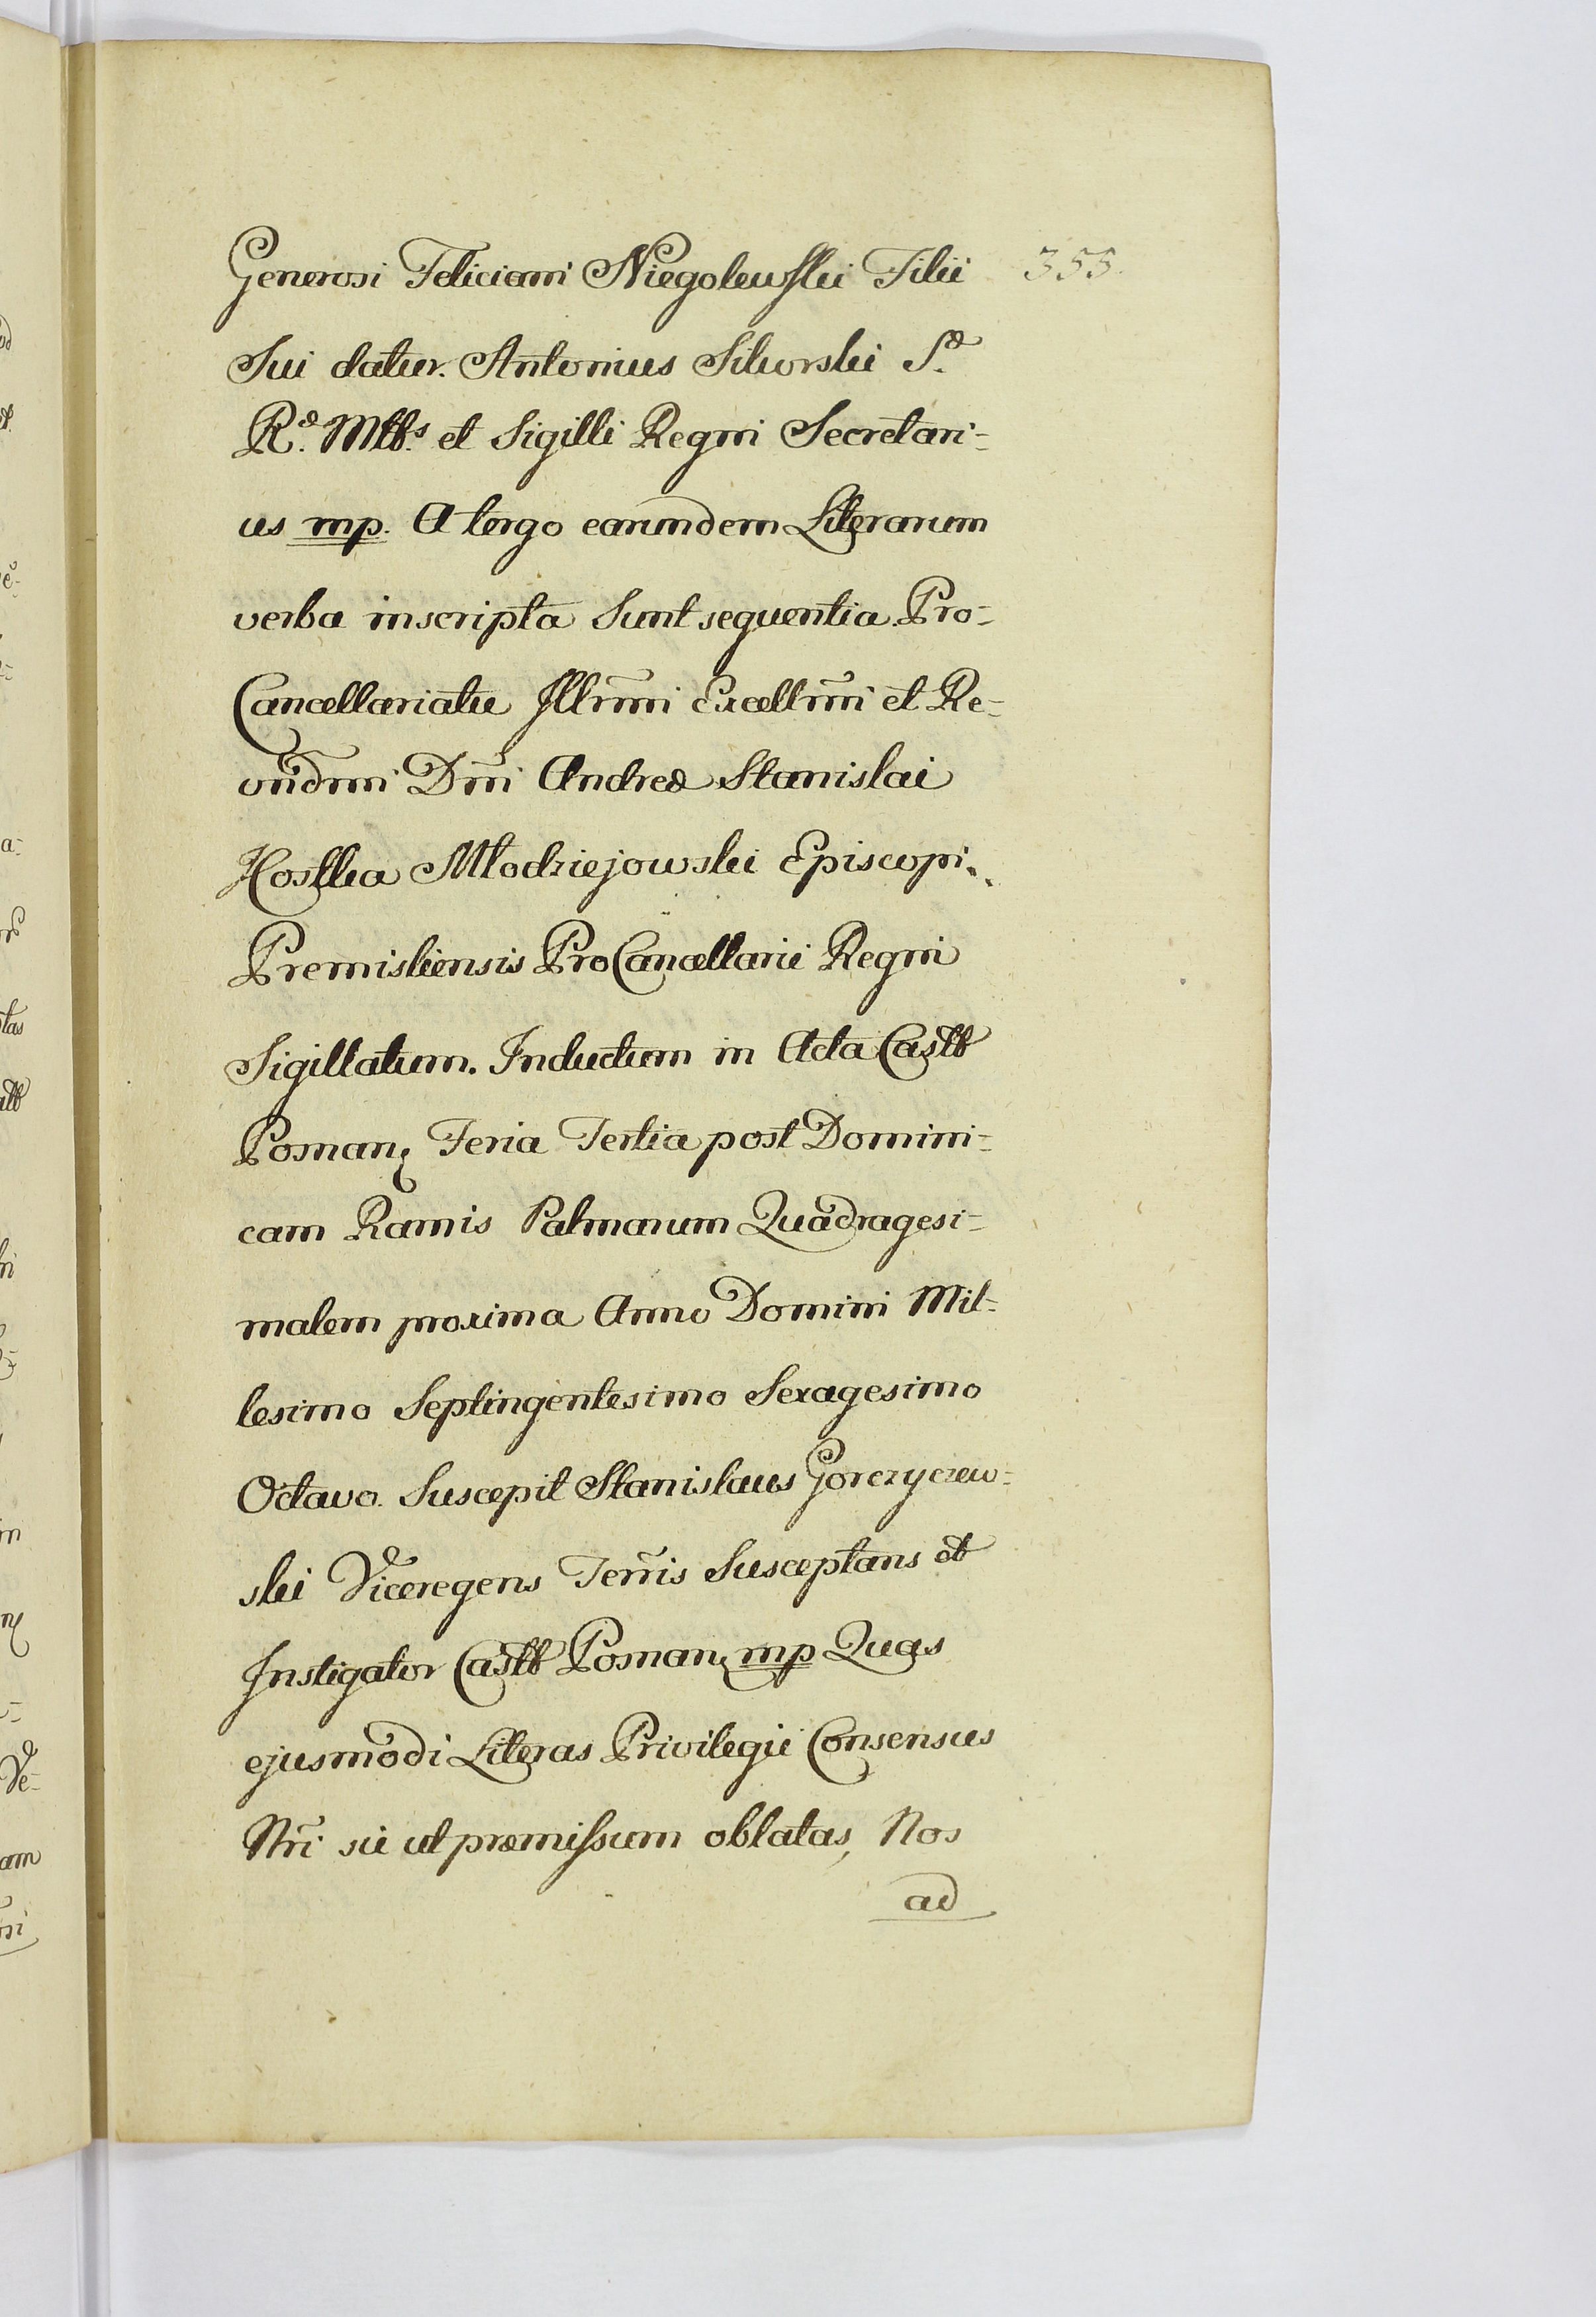 Generosi Feliciani Niegolewskii Filii 355.
Sui datur. Antonius Sikorski S.æ
R.æ Mttis et Sigilli Regni Secretari=
us mp. A tergo earundem Literarum
verba inscripta Sunt sequentia. Pro=
Cancellariatu Illrmi Excellmi et Re=
vndmi Dni Andreæ Stanislai
Kostka Młodziejowski Episcopi
Premisliensis ProCancellarii Regni
Sigillatum. Inductum in Acta Castr
Posnan, Feria Tertia post Domini=
cam Ramis Palmarum Quadragesi=
malem proxima Anno Domini Mil=
lesimo Septingentesimo Sexagesimo
Octavo. Suscepit Stanislaus Gorczyczew=
ski Viceregens Terris Susceptans et
Instigator Castr Posnan, mp Quas
ejusmodi Literas Privilegii Consensus
Nri sic ut præmissum oblatas, Nos
ad